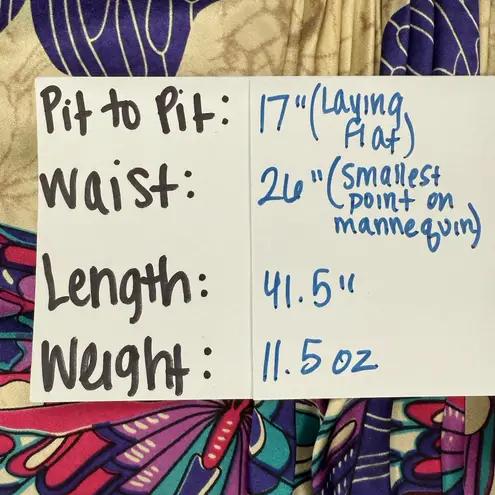 Pit to Pit: 17" (Laying
Flat)
Waist: 26" (Smallest
point on
mannequin)
Length: 41.5"
Weight: 11.5 oz